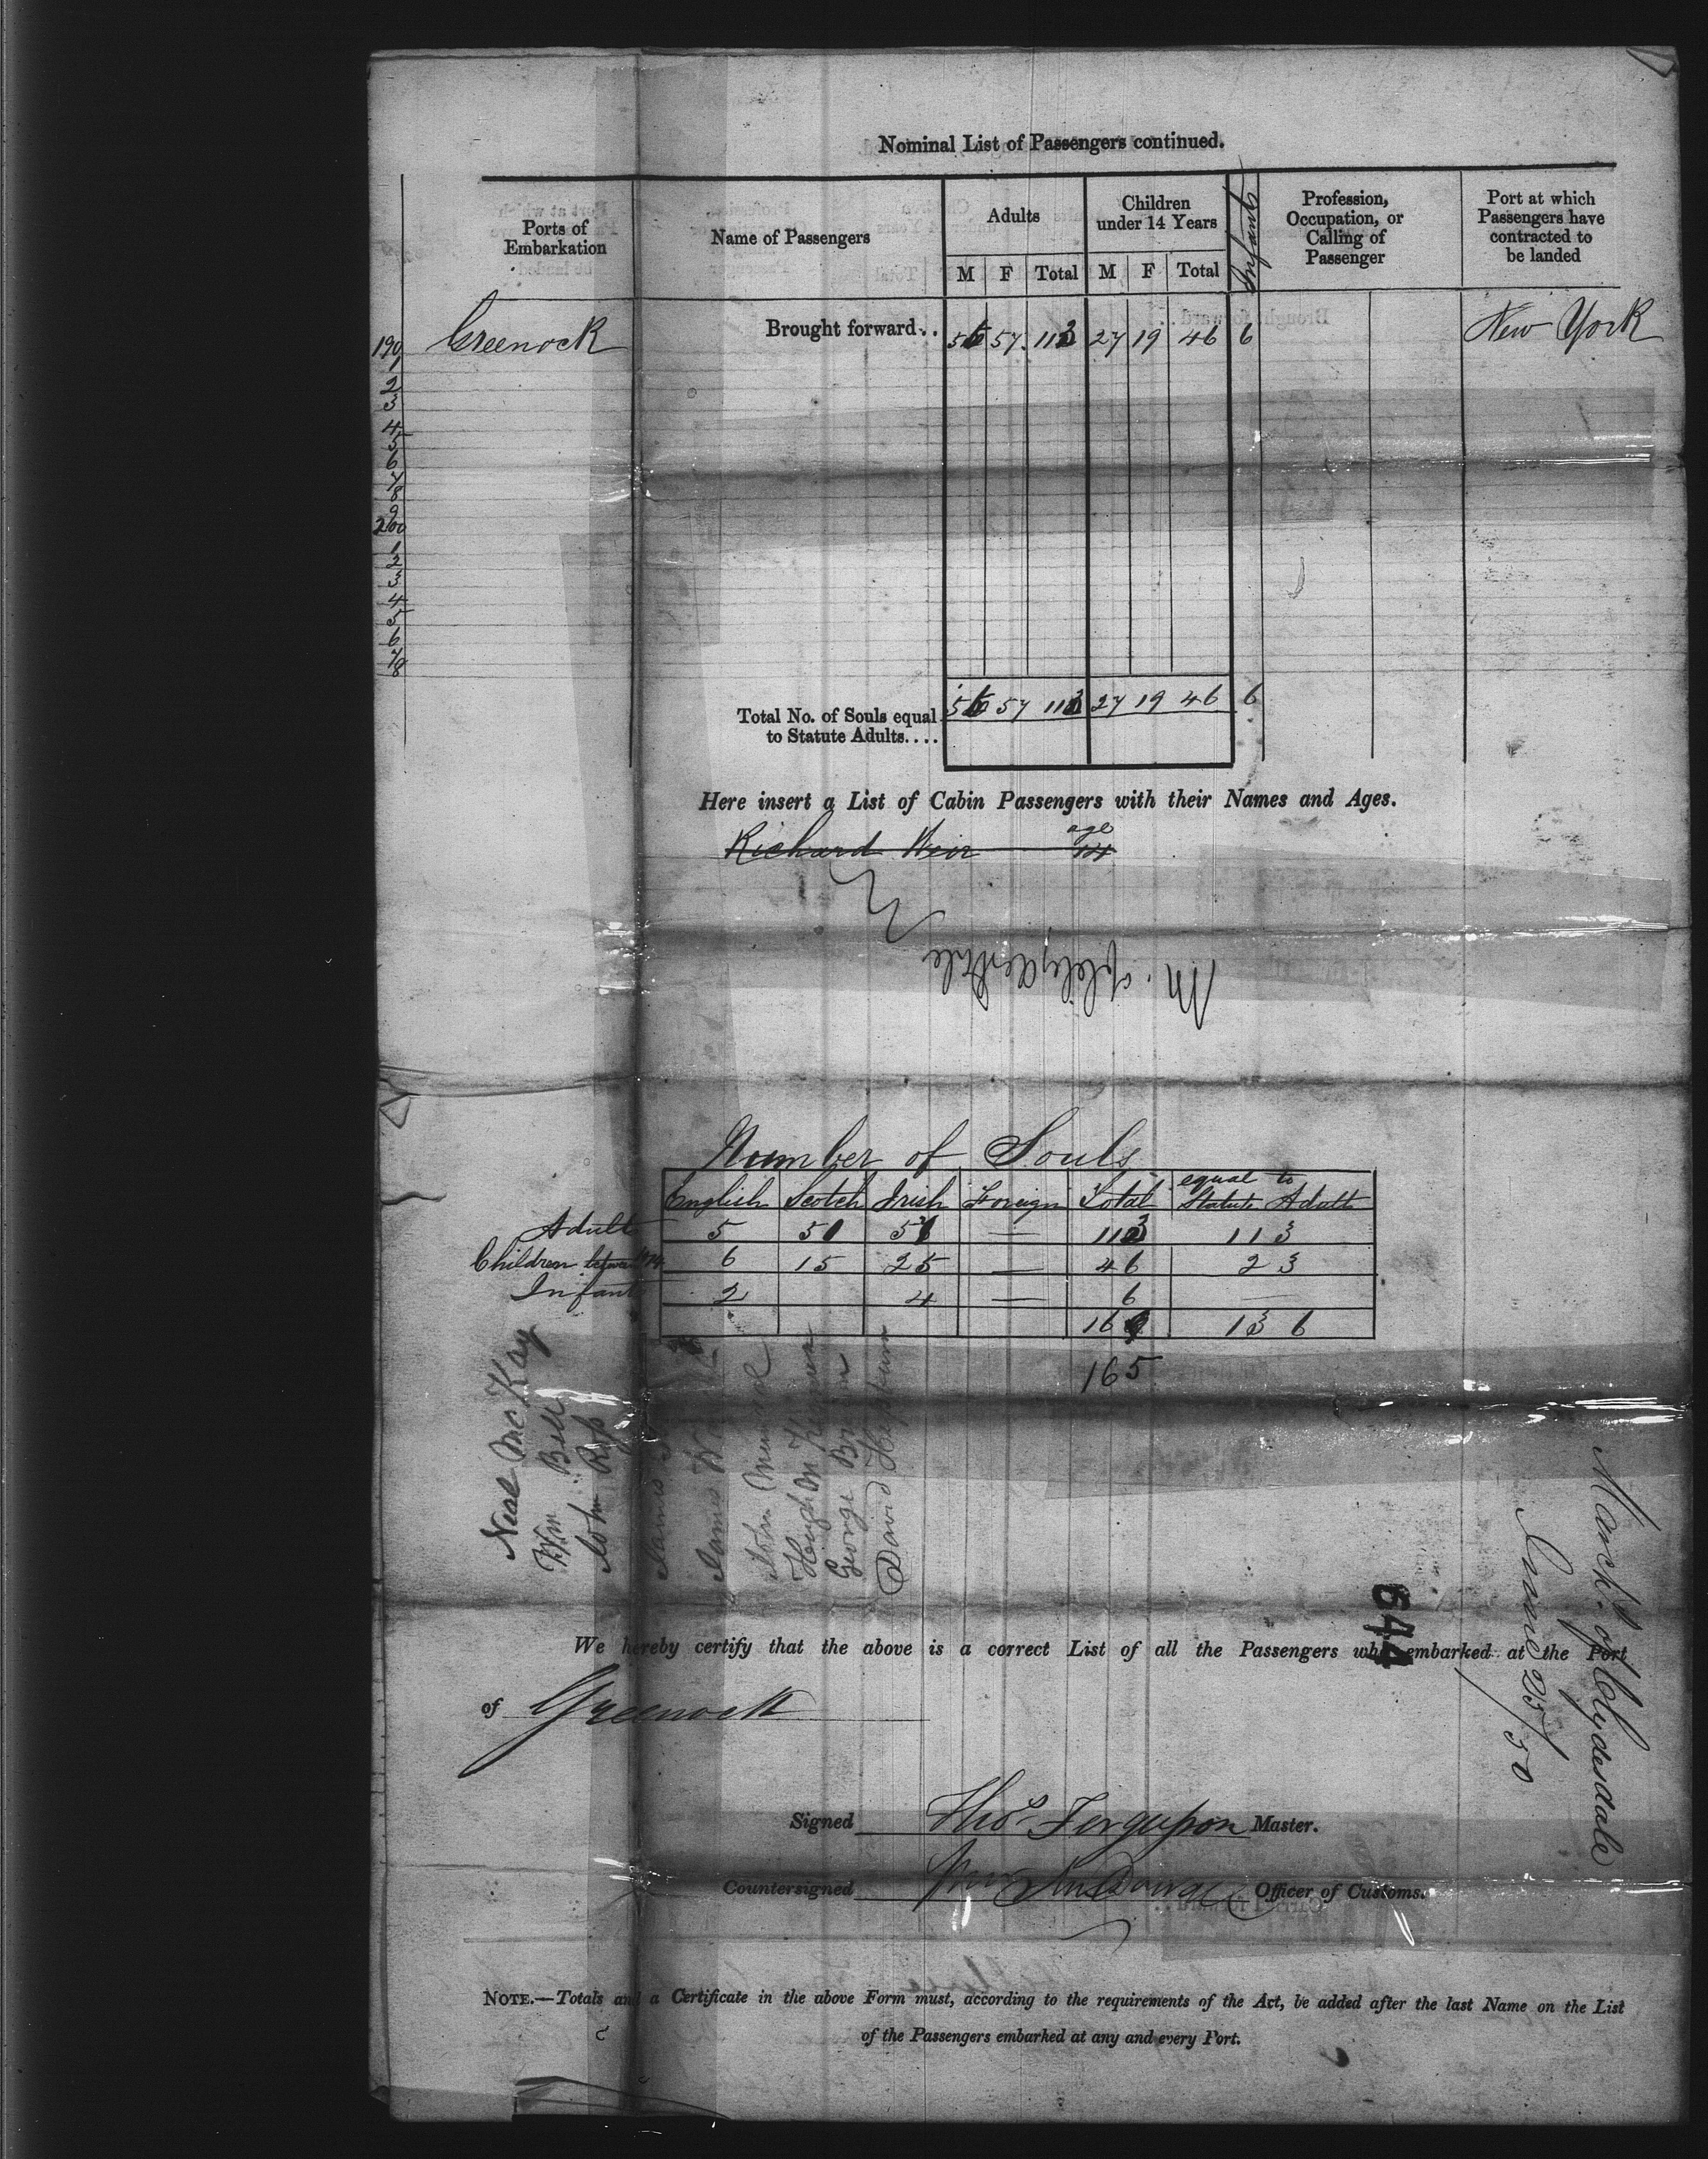 Nominal List of Passengers continued.
Ports of Embarkation
Name of Passengers
Adults
Children under 14 Years
Infants
Profession, Occupation, or Calling of Passenger
Port at which Passengers have contracted to be landed
M F Total M F Total
190 Greenock Brought forward.. 56 57 113 27 19 46 6 New York
1
2
3
4
5
6
7
8
9
200
1
2
3
4
5
6
7
8
Total No. of Souls equal to Statute Adults.... 56 57 113 27 19 46 6
Here insert a List of Cabin Passengers with their Names and Ages.
age
Richard Weir
M. of Clydesdale
Number of Souls
English Scotch Irish Foreign Total equal to Statute Adults
Adults 5 51 57 — 113 113
Children between 1 & 14 6 15 25 — 46 23
Infants 2 4 — 6
136
165
Neal McKay
Wm Bell
John Ross
James
James
John
Hugh
George Brown
David
March. of Clydesdale
June 25/50
644
We hereby certify that the above is a correct List of all the Passengers who embarked at the Port
of Greenock
Signed Thos Ferguson Master.
Countersigned Officer of Customs.
NOTE.—Totals and a Certificate in the above Form must, according to the requirements of the Act, be added after the last Name on the List
of the Passengers embarked at any and every Port.